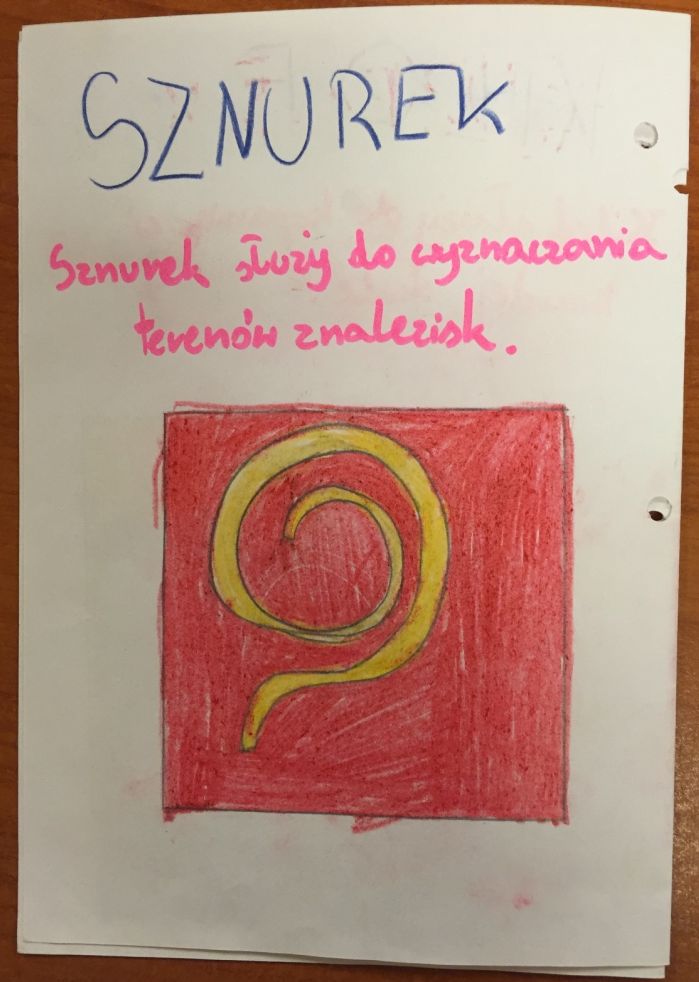 SZNUREK
Sznurek służy do wyznaczania
terenów znalezisk.